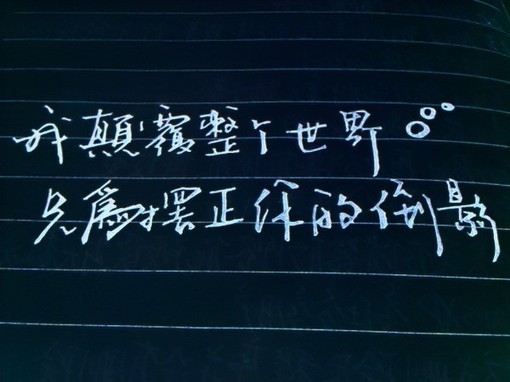 我顛覆整个世界。
只為擺正你的倒影